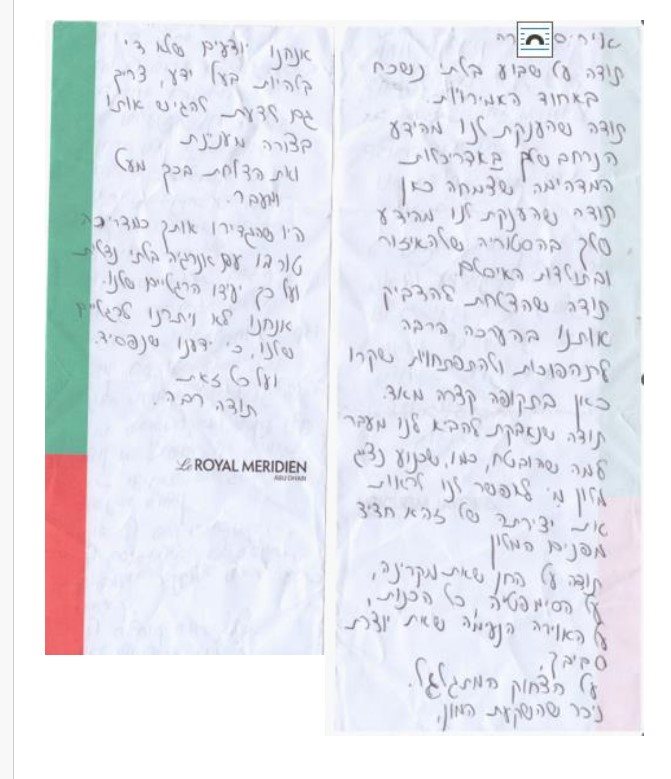 תודה על שבוע בלתי נשכח
באחוד האמירויות.
תודה שהענקת לנו מהידע
הנרחב שלך באדריכלות
המדהימה שצמחה כאן
תודה שהענקת לנו מהידע
שלך בהסטוריה שלהאיזור
ובתולדות האיסלם
תודה שהצלחת להדביק
אותנו בהערכה הרבה
לתהפוכות ולהתפתחויות שקרו
כאן בתקופה קצרה מאד.
תודה שנאבקת להביא לנו מעבר
למה שהובטח, כמו, שכנוע נציג
מלון מי לאפשר לנו לראות
את יצירתה של זהא חדיד
מפנים המלון
תודה על החן שאת מקרינה,
על הסימפטיה, כל הכנות,
על האוירה הנעימה שאת יוצרת
סביבך.
על הצחוק המתגלגל.
ניכר שהשקעת המון,
אנחנו יודעים שלא די
בלהיות בעל ידע, צריך
גם לדעת להגיש אותו
בצורה מענינת
ואת הצלחת בכך מעל
ומעבר.
היו שהגדירו אותך כמדריכה
טורבו עם אנרגיה בלתי נדלית
ועל כך יעידו הרגליים שלנו.
אנחנו לא ויתרנו לרגליים
שלנו, כי ידענו שנפסיד.
ועל כל זאת
תודה רבה.
Le ROYAL MERIDIEN
ABU DHABI